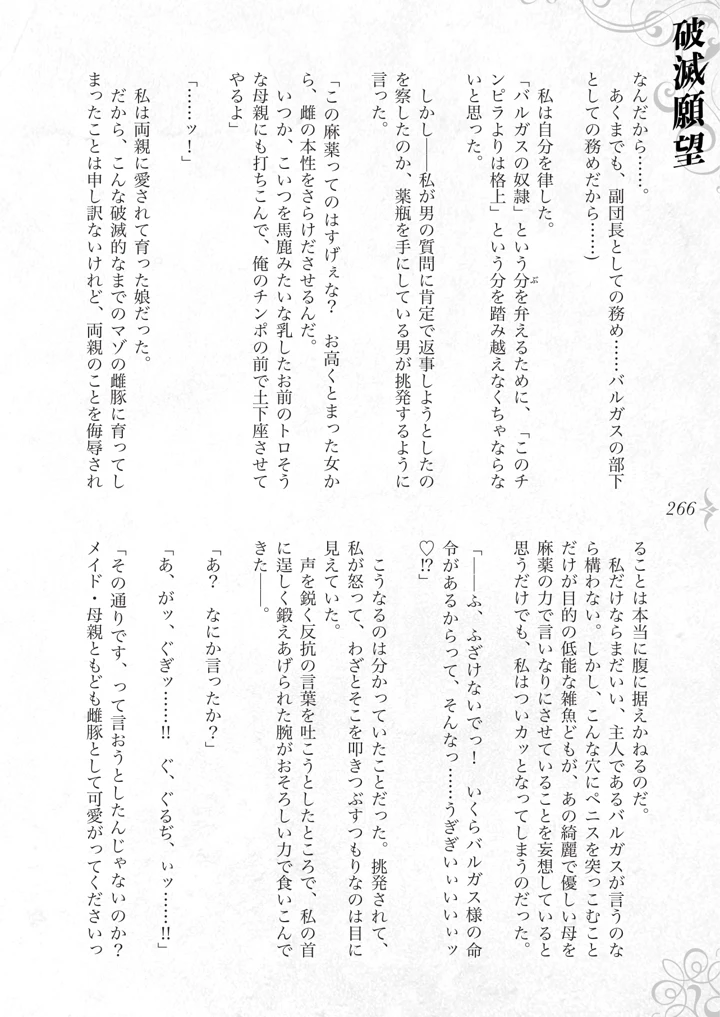 破滅願望
なんだから……。
　あくまでも、副団長としての務め……バルガスの部下
としての務めだから……)
　私は自分を律した。
「バルガスの奴隷」という分を弁えるために、「このチ
ぶ
ンピラよりは格上」という分を踏み越えなくちゃならな
いと思った。
　しかし――私が男の質問に肯定で返事しようとしたの
を察したのか、薬瓶を手にしている男が挑発するように
言った。
「この麻薬ってのはすげぇな？　お高くとまった女か
ら、雌の本性をさらけださせるんだ。
　いつか、こいつを馬鹿みたいな乳したお前のトロそう
な母親にも打ちこんで、俺のチンポの前で土下座させて
やるよ」
「……ッ！」
　私は両親に愛されて育った娘だった。
　だから、こんな破滅的なまでのマゾの雌豚に育ってし
まったことは申し訳ないけれど、両親のことを侮辱され
266
ることは本当に腹に据えかねるのだ。
　私だけならまだいい、主人であるバルガスが言うのな
ら構わない。しかし、こんな穴にペニスを突っこむこと
だけが目的の低能な雑魚どもが、あの綺麗で優しい母を
麻薬の力で言いなりにさせていることを妄想していると
思うだけでも、私はついカッとなってしまうのだった。
「――ふ、ふざけないでっ！　いくらバルガス様の命
令があるからって、そんなっ……うぎぎいぃいいぃッ
♡!?」
　こうなるのは分かっていたことだった。挑発されて、
私が怒って、わざとそこを叩きつぶすつもりなのは目に
見えていた。
　声を鋭く反抗の言葉を吐こうとしたところで、私の首
に逞しく鍛えあげられた腕がおそろしい力で食いこんで
きた――。
「あ？　なにか言ったか？」
「あ、がッ、ぐぎッ……!!　ぐ、ぐるぢ、ぃッ……!!」
「その通りです、って言おうとしたんじゃないのか？
メイド・母親ともども雌豚として可愛がってくださいっ